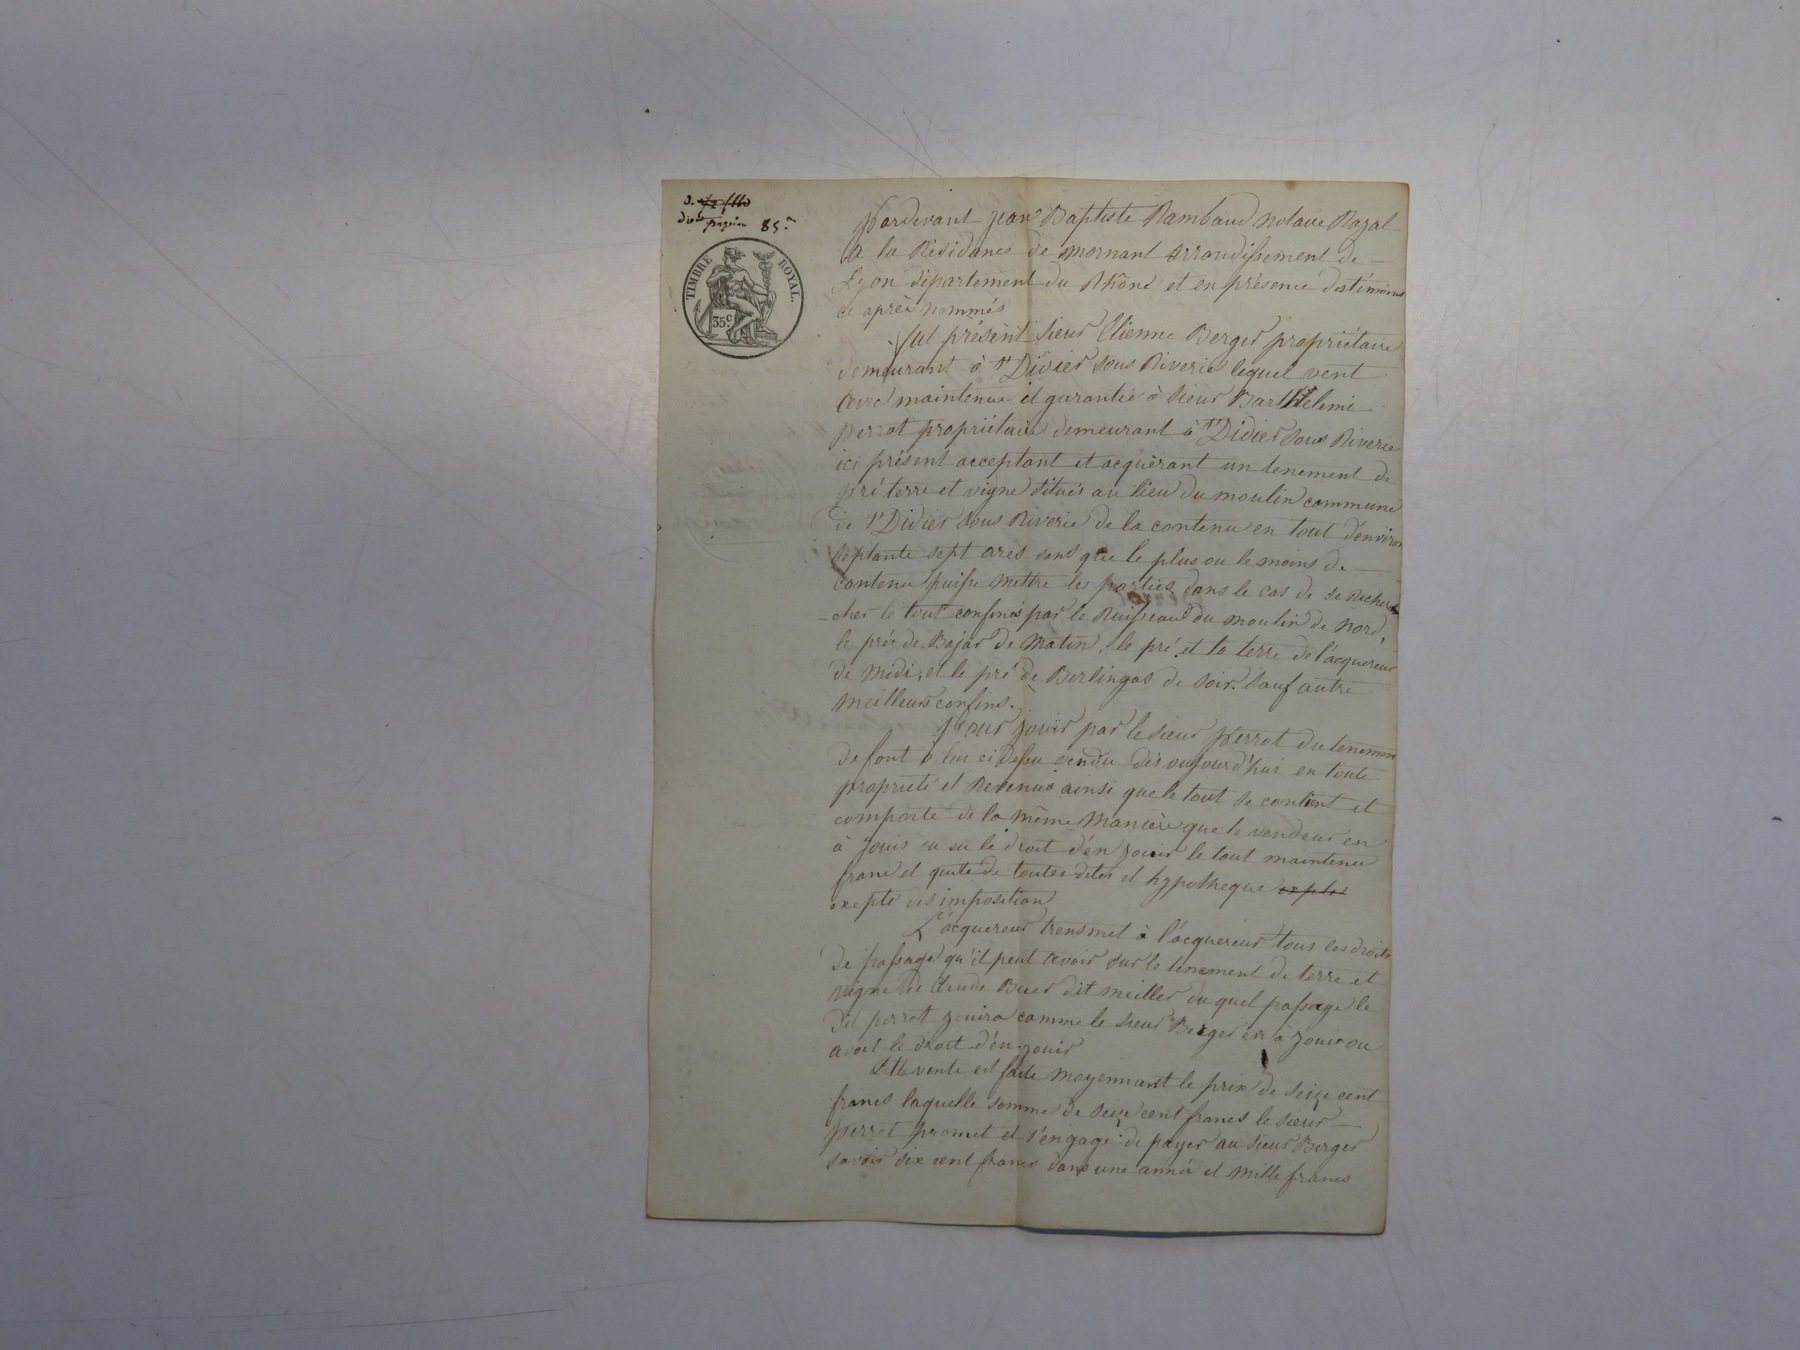 85.
TIMBRE ROYAL.
35 c
Pardevant Jean Baptiste Rambaud notaire Royal
A la Résidance de Mornant arrondissement de
Lyon département du Rhône et en présence des témoins
ci après nommés
fut présent sieur Etienne Berger propriétaire
demeurant à St Didier sous Riverie lequel vent
avec maintenue et garantie à sieur Barthelemi
Perrot propriétaire demeurant à St Didier sous Riverie
ici présent acceptant et acquèrant un tenement de
pré terre et vigne situés au lieu du moulin commune
de St Didier sous Riverie de la contenu en tout d'environ
septante sept ares sans que le plus ou le moins de
contenu puisse mettre les parties dans le cas de se recher
-cher le tout confinés par le Ruisseau du moulin de nord,
le pré de Bajar de matin, le pré et la terre de l'acquereur
de midi, et le pré de Berlingas de soir. sauf autre
meilleurs confins.
Pour jouir par le sieur Perrot du tenement
de font à lui ci dessu vendu dès aujourd'hui en toute
propriété et Revenus ainsi que le tout se contient et
comporte de la même manière que le vendeur en
à jouis ou eu le droit d'en jouir le tout maintenu
franc et quite de toutes detes et hypotheque
exepté des imposition
L'acquereur transmet à l'acquereur tous les droits
de passage qu'il peut avoir sur le tenement de terre et
vigne de Claude Buer dit meiller du quel passage le
dit perrot jouira comme le sieur Berger en à jouir ou
avoit le droit d'en jouir
Cette vente est faite moyennant le prix de seize cent
francs laquelle somme de seize cent francs le sieur
Perrot promet et s'engage de payer au sieur Berger
savoir six cent francs dans une année et mille francs